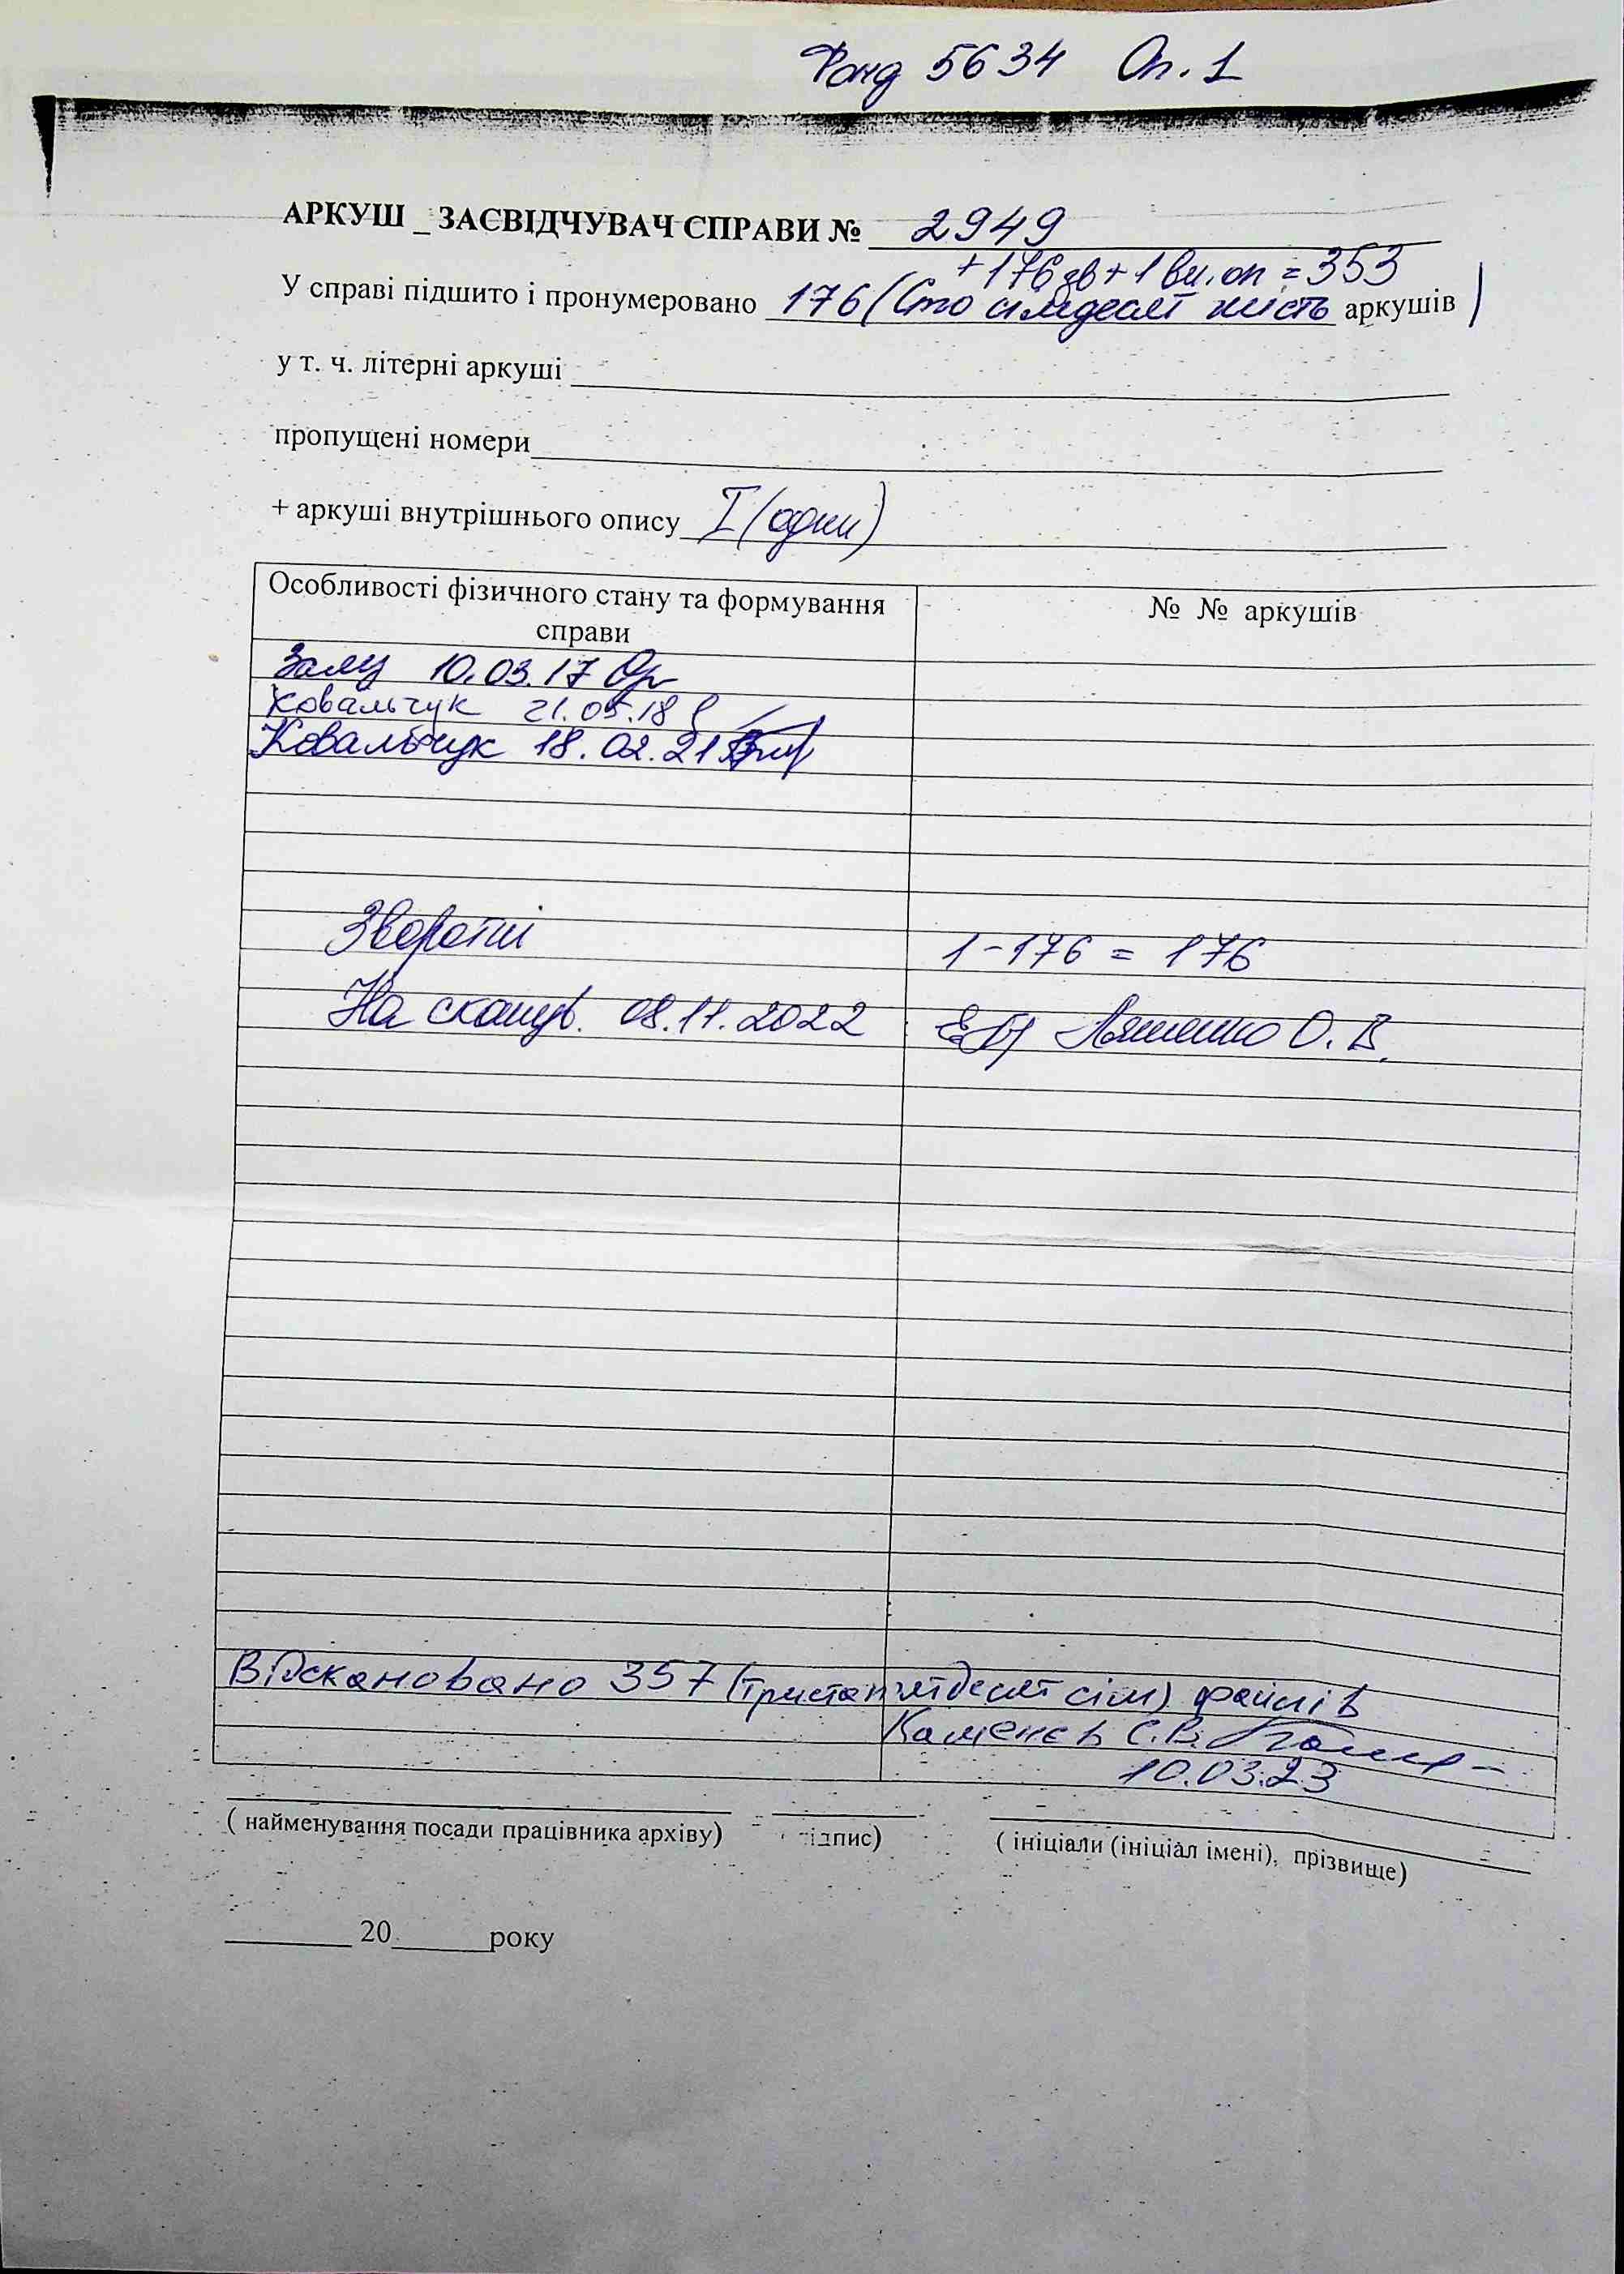 Фонд 5634 Оп. 1
АРКУШ _ ЗАСВІДЧУВАЧ СПРАВИ № 2949
+176 зв + 1 вн. оп = 353
У справі підшито і пронумеровано 176 (Сто сімдесят шість аркушів)
у т. ч. літерні аркуші
пропущені номери
+ аркуші внутрішнього опису I (один)
Особливості фізичного стану та формування справи
№ № аркушів
10.03.17
Ковальчук 21.05.18
Ковальчук 18.02.21
Зворотні 1-176 = 176
На сканув. 08.11.2022 Ляшенко О. В.
Відскановано 357 (триста п'ятдесят сім) файлів
Каменєв С.В.
10.03.23
( найменування посади працівника архіву) підпис) ( ініціали (ініціал імені), прізвище)
20 року